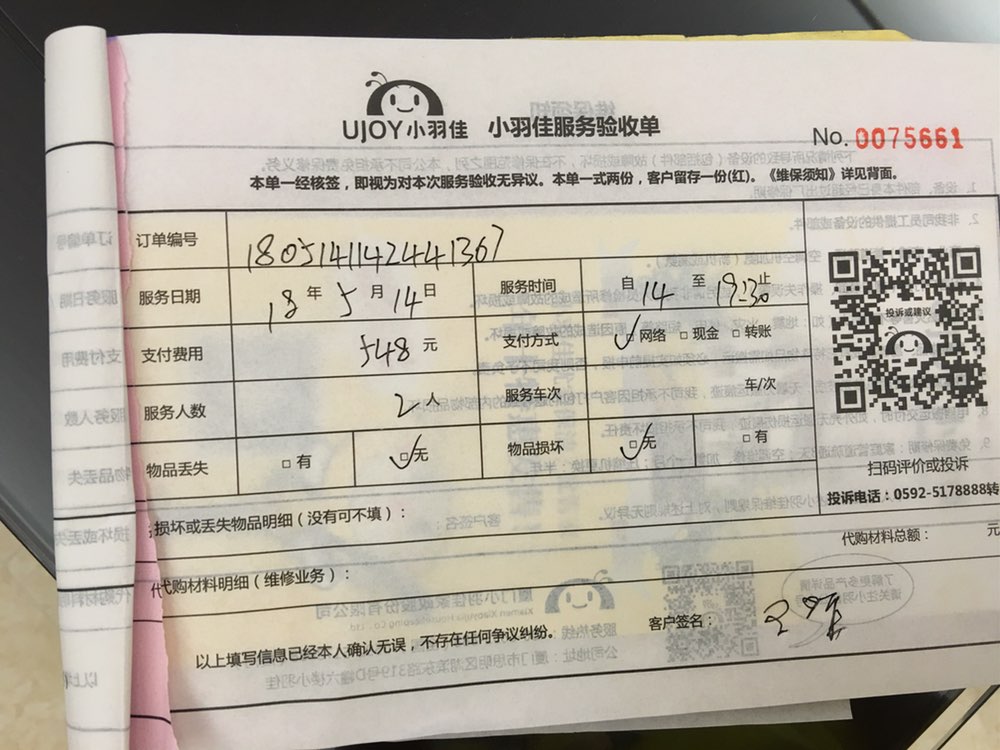 UJOY小羽佳 小羽佳服务验收单
No. 0075661
本单一经核签，即视为对本次服务验收无异议。本单一式两份，客户留存一份(红)。《维保须知》详见背面。
订单编号 1805141142441367
服务日期 18年5月14日 服务时间 自14至19:30止
支付费用 548元 支付方式 √□网络 □现金 □转账
服务人数 2人 服务车次 车/次
物品丢失 □有 √□无 物品损坏 √□无 □有
投诉或建议
扫码评价或投诉
投诉电话：0592-5178888转
损坏或丢失物品明细（没有可不填）：
代购材料总额： 元
代购材料明细（维修业务）：
客户签名：
以上填写信息已经本人确认无误，不存在任何争议纠纷。